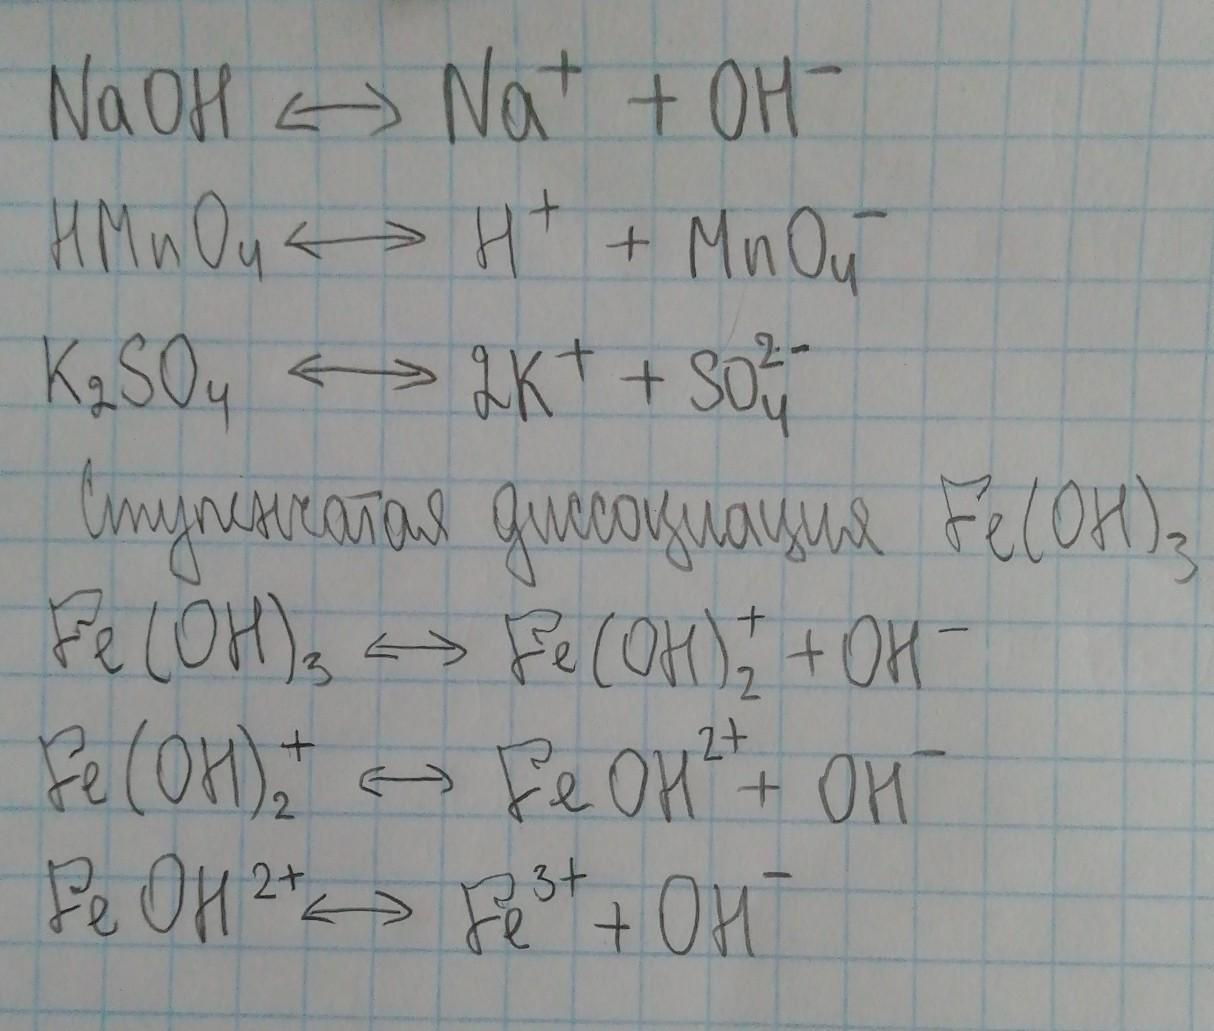 NaOH ⟷ Na⁺ + OH⁻
HMnO₄ ⟷ H⁺ + MnO₄⁻
K₂SO₄ ⟷ 2K⁺ + SO₄²⁻
Ступенчатая диссоциация Fe(OH)₃
Fe(OH)₃ ⟷ Fe(OH)₂⁺ + OH⁻
Fe(OH)₂⁺ ⟷ FeOH²⁺ + OH⁻
FeOH²⁺ ⟷ Fe³⁺ + OH⁻